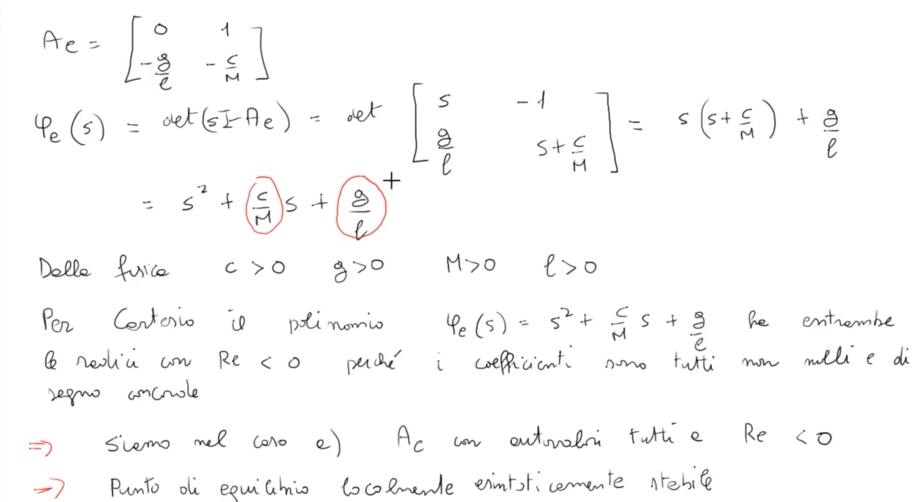 Ae = [ 0 1 ; -g/l -c/M ]
φe(s) = det(sI-Ae) = det [ s -1 ; g/l s+c/M ] = s(s+c/M) + g/l
= s² + c/M s + g/l
Dalla fisica c>0 g>0 M>0 l>0
Per Cartesio il polinomio φe(s) = s² + c/M s + g/l ha entrambe
le radici con Re < 0 perché i coefficienti sono tutti non nulli e di
segno concorde
⇒ Siamo nel caso a) Ae con autovalori tutti a Re < 0
⇒ Punto di equilibrio localmente asintoticamente stabile